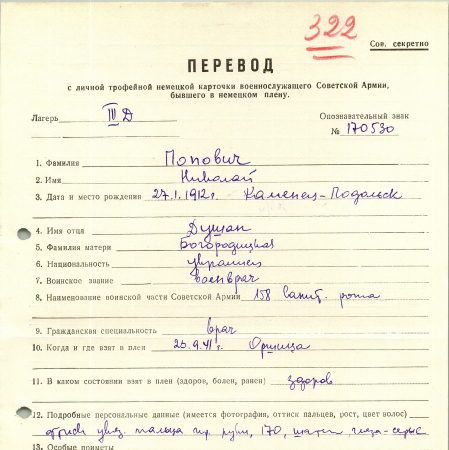 322
Сов. секретно
ПЕРЕВОД
с личной трофейной немецкой карточки военнослужащего Советской Армии,
бывшего в немецком плену.
Лагерь IV Д Опознавательный знак
№ 170530
1. Фамилия Попович
2. Имя Николай
3. Дата и место рождения 27.1.1912г. Каменец-Подольск
4. Имя отца Душан
5. Фамилия матери Богородицкая
6. Национальность украинец
7. Воинское звание военврач
8. Наименование воинской части Советской Армии 158 санит. рота
9. Гражданская специальность врач
10. Когда и где взят в плен 26.9.41г. Оржица
11. В каком состоянии взят в плен (здоров, болен, ранен) здоров
12. Подробные персональные данные (имеется фотография, оттиск пальцев, рост, цвет волос)
оттиск указ. пальца пр. руки, 170, шатен, глаза-серые
13. Особые приметы